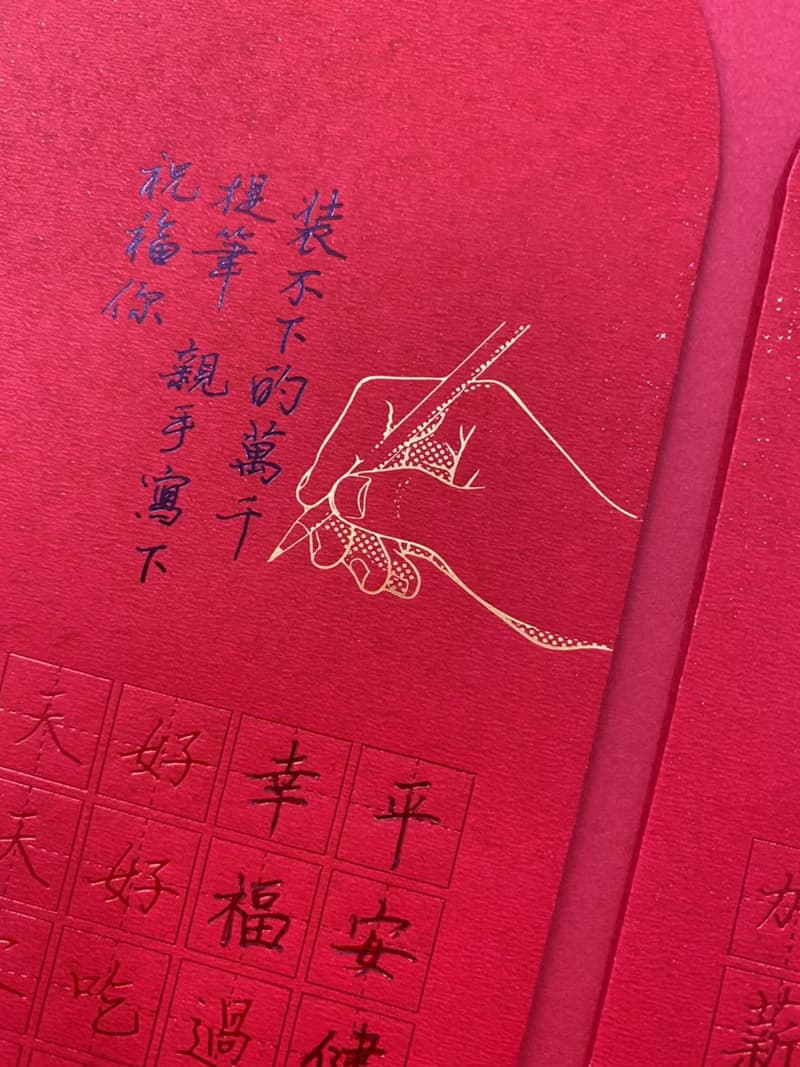 裝不下的萬千
提筆 親手寫下
祝福你
平安健
幸福過
好好吃
天天
加薪